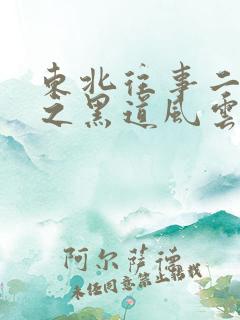 東北往事二
之黑道風雲
阿尔萨德
未经同意禁止转载